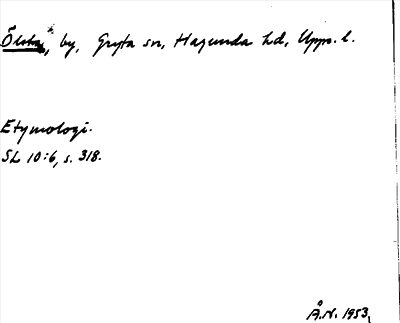 Ölsta, by, Gryta sn, Hagunda hd, Upps. l.
Etymologi.
SL 10:6, s. 318.
Å.N. 1953.